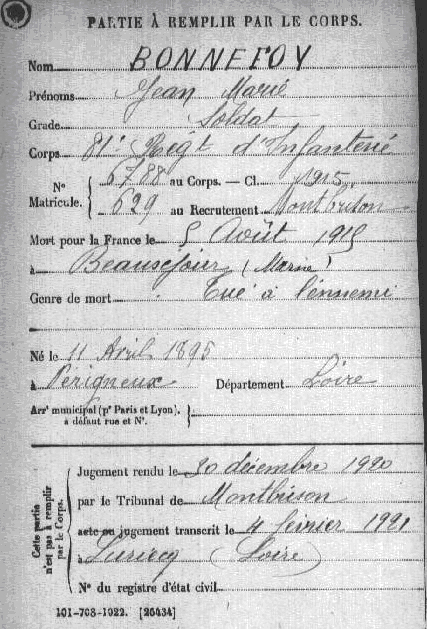 PARTIE À REMPLIR PAR LE CORPS.
Nom BONNEFOY
Prénoms Jean Marie
Grade Soldat
Corps 81e Régt d'Infanterie
N° Matricule. { 6788 au Corps. — Cl. 1915
629 au Recrutement Montbrison
Mort pour la France le 5 Août 1915
à Beauséjour (Marne)
Genre de mort Tué à l'ennemi
Né le 11 Avril 1895
à Périgneux Département Loire
Arrt municipal (pr Paris et Lyon), à défaut rue et N°. {
Cette partie n'est pas à remplir par le Corps.
Jugement rendu le 30 décembre 1920
par le Tribunal de Montbrison
acte ou jugement transcrit le 4 février 1921
à Luriecq (Loire)
N° du registre d'état civil
101-708-1922. [26434]